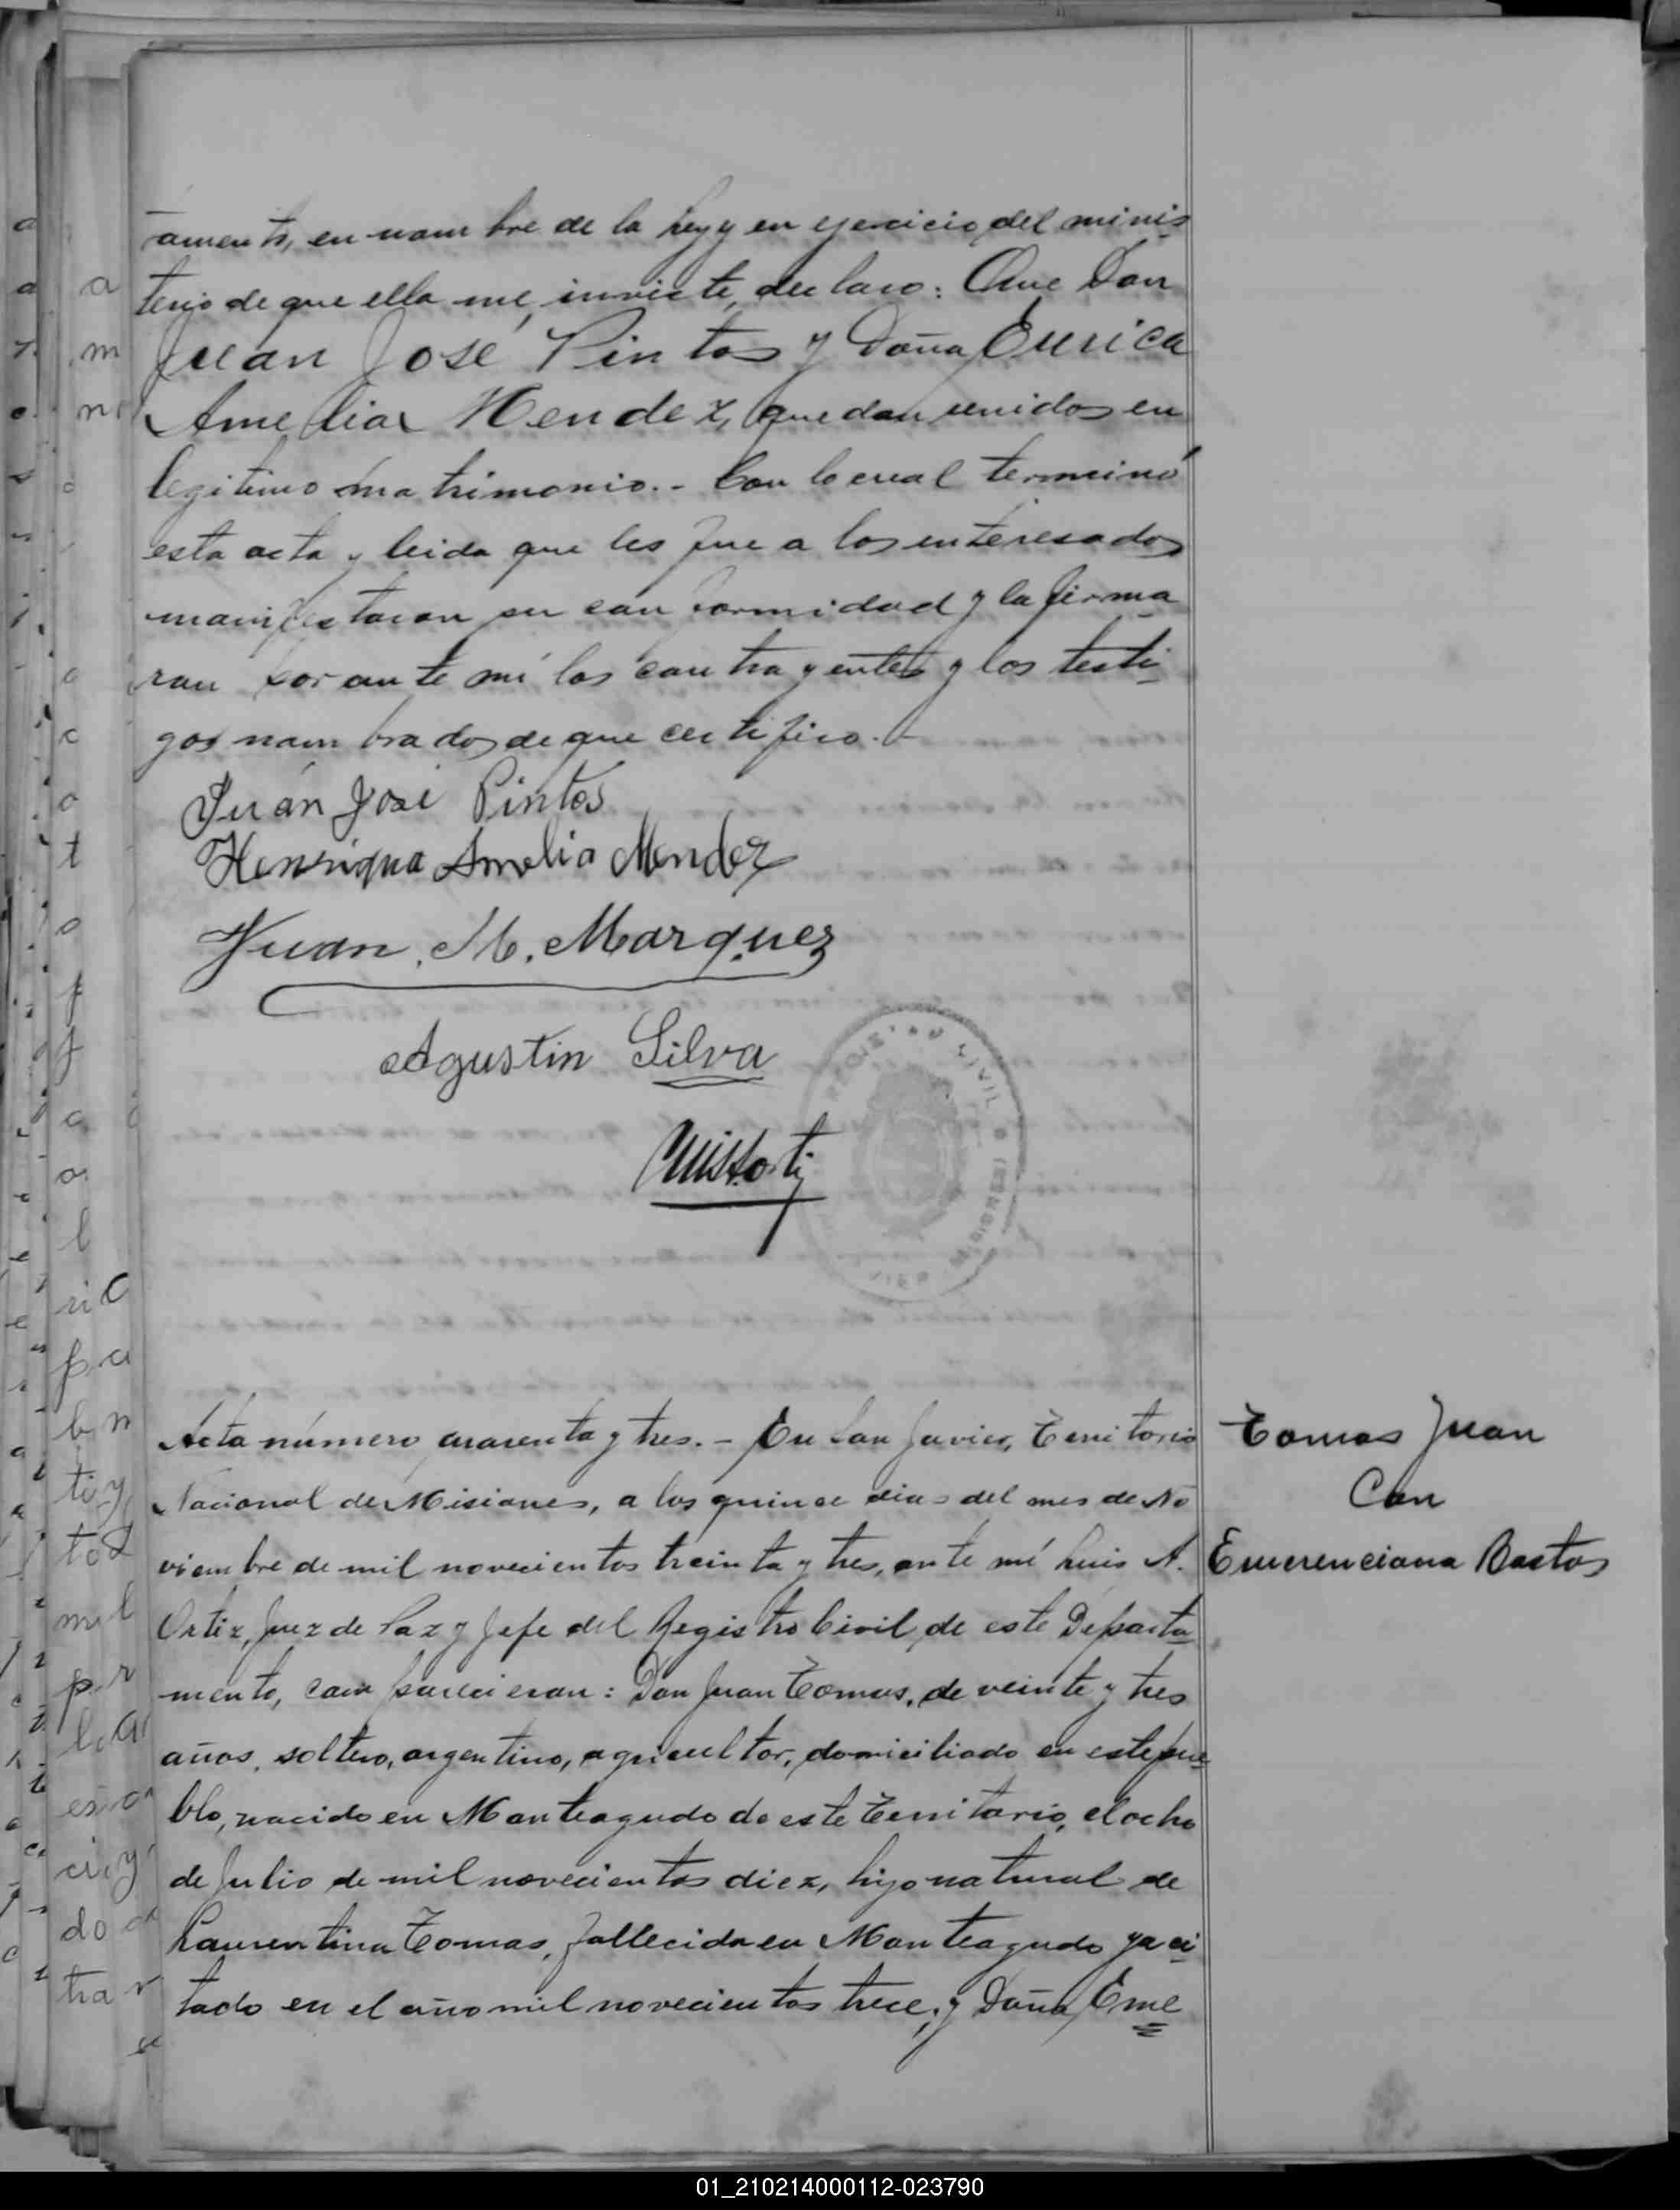 amento, en nombre de la ley y en ejercicio del minis
terio de que ella me inviste, declaro: Que Don
Juan José Pintos y Doña Enrica
Amelia Mendez, quedan unidos en
legitimo matrimonio.- Con lo cual terminó
esta acta y leida que les fue a los enteresados
manifestaron su conformidad y la firma
ran por ante mí los contrayentes y los testi
gos nombrados de que certifico.-
Juan José Pintos
Henriqua Amelia Mendez
Juan. M. Marquez
Agustin Silva
REGISTRO CIVIL
MISIONES
VIER
Acta número cuarenta y tres.- En San Javier, Territorio
Nacional de Misiones, a los quince dias del mes de No
viembre de mil novecientos treinta y tres, ante mí Luis A.
Ortiz, Juez de Paz y Jefe del Registro Civil de este Departa
mento, comparecieron: Don Juan Tomas, de veinte y tres
años, soltero, argentino, agricultor, domiciliado en este pue
blo, nacido en Monteagudo de este Territorio, el ocho
de Julio de mil novecientos diez, hijo natural de
Laurentina Tomas, fallecida en Monteagudo ya ci
tado en el año mil novecientos trece; y Doña Eme
Tomas Juan
Con
Emerenciana Bastos
01_210214000112-023790